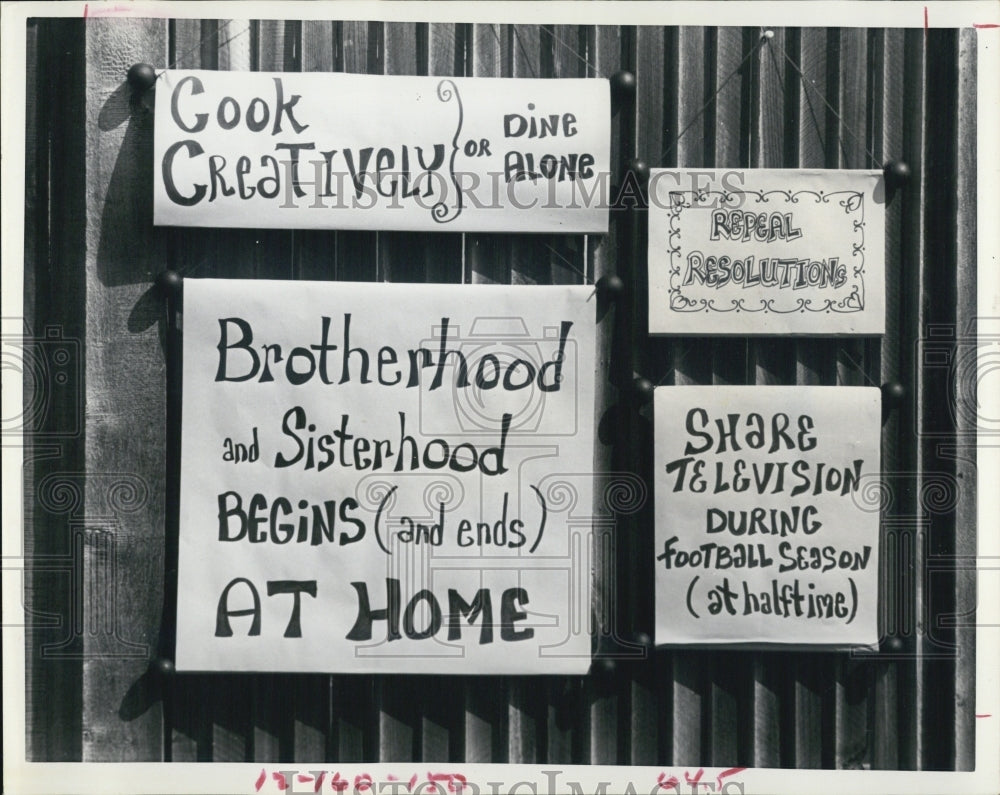 Cook
Creatively } or Dine
Alone
Repeal
Resolutions
Brotherhood
and Sisterhood
Begins (and ends)
At Home
Share
Television
During
Football Season
(at halftime)
HISTORIC IMAGES
HISTORIC IMAGES
12-160-150 645